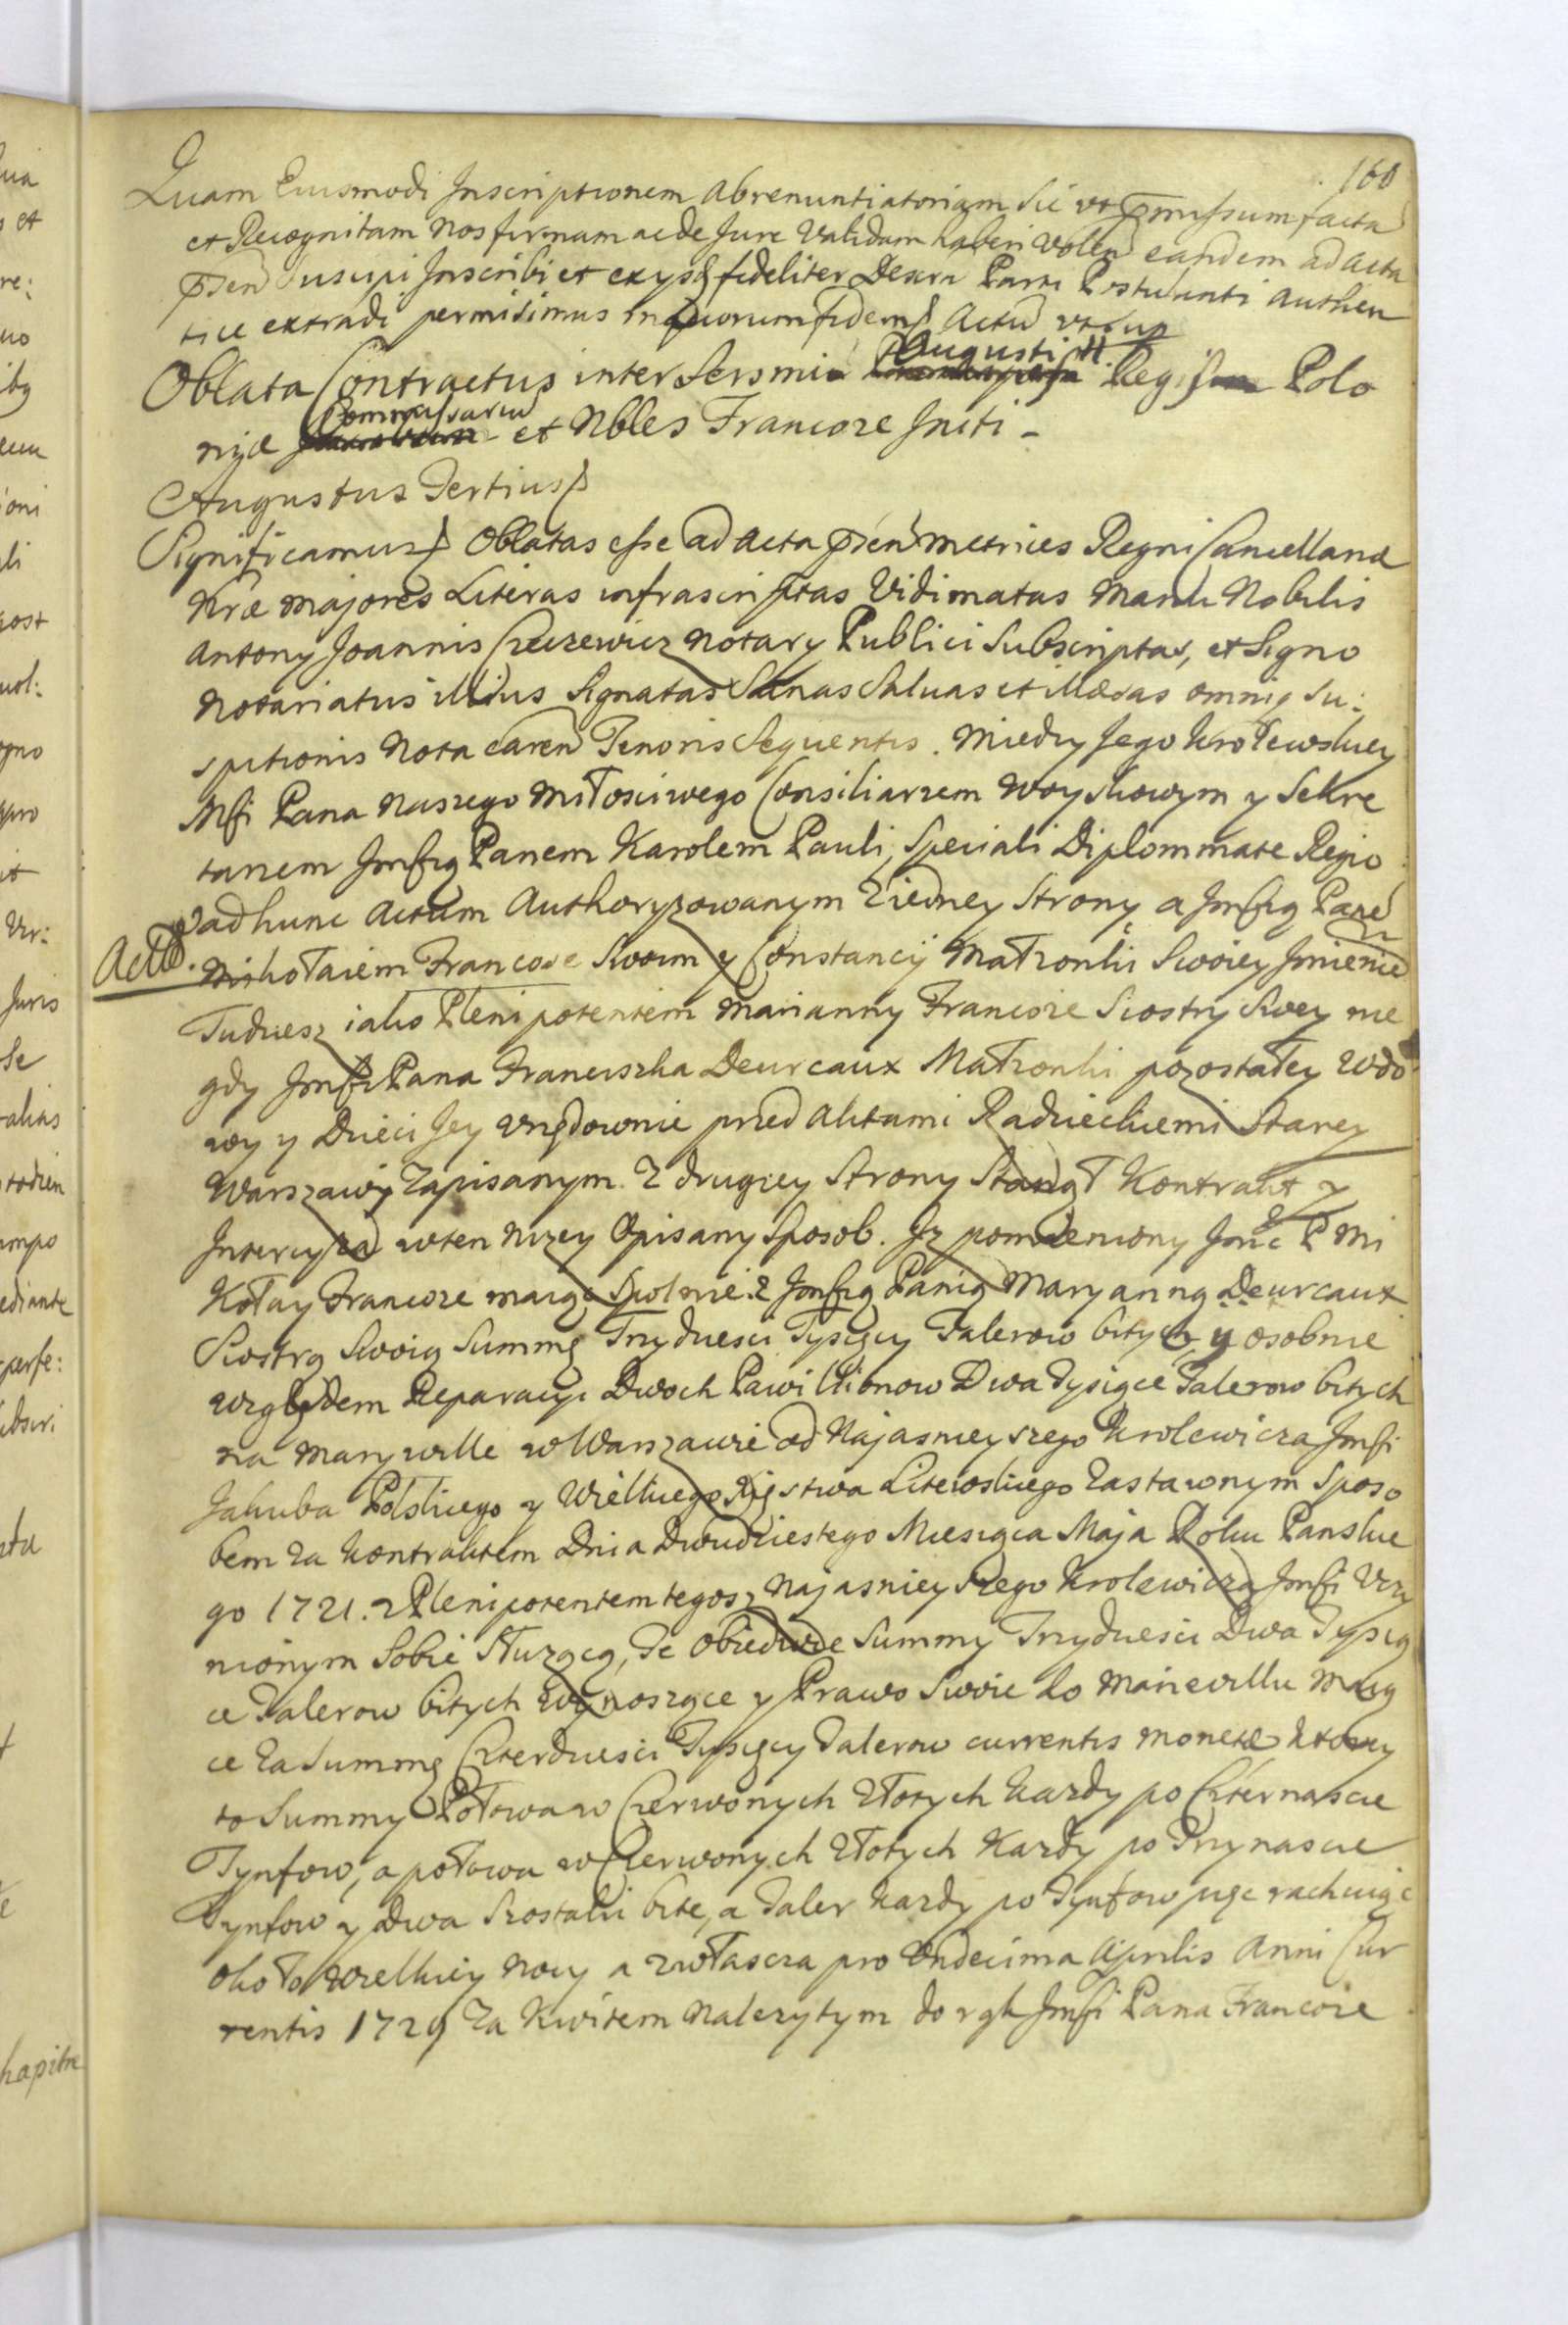 160
Quam Eiusmodi Inscriptionem Abrenuntiatoriam Sic vt pmissum facta
et Recognitam Nos firmam ac de Jure Validam haberi Volen eandem ad Acta
psen suscipi Inscribi et ex ysq fideliter Descri Parti Postulanti Authen
tice extradi permisimus In quorum fidem Actu vt sup
Oblata Contractus inter Sersmi Augusti II Regis Polo
niæ Commissarium et Nbles Francoze Initi -
Augustus Tertius
Significamus Oblatas esse ad Acta psen Metrices Regni Cancellariæ
Nræ Majores Literas infrascriptas Vidimatas Manu Nobilis
Antony Joannis Czeczewicz Notary Publici Subscriptas, et Signo
Notariatus illius Signatas Sanas Saluas et illæsas omniq Su:
spitionis Nota caren Tenoris Sequentis. Miedzy Jego Krolewskiey
Msci Pana Naszego Miłosciwego Consiliarzem Woyskowym y Sekre
tarzem Jmscią Panem Karolem Pauli, Speciali Diplommate Regio
ad hunc Actum Authoryzowanym z iedney Strony a Jmscią Pane
Actt. Mikołaiem Francoze Swoim y Constancÿ Małzonki Swoiey Jmienie
Tudziesz iako Plenipotentem Marianny Francoze Siostry Swey nie
gdy Jmsci Pana Franciszka Deurcaux Małzonki pozostałey wdo
wy y Dzieci Jey Vrzędownie przed Aktami Radzieckiemi Starey
Warszawy Zapisanym. Z drugiey Strony Stanął Kontrakt y
Intercyza w ten nizey Opisany Sposob. Jz pomieniony Jmc P Mi
kołay Francoze maiąc Spolnie z Jmscią Panią Maryanną Deurcaux
Siostrą Swoią Summę Trzydziesci Tysięcy Talerow bitych, y osobnie
względem Reparacyi Dwoch Pawillionow Dwa Tysiące Talerow bitych
na Marywille w Warszawie od Najasnieyszego Krolewicza Jmsci
Jakuba Polskiego y Wielkiego Xięstwa Litewskiego Zastawnym Sposo
bem za Kontraktem Dnia Dwudziestego Miesiąca Maja Roku Panskie
go 1721. z Plenipotentem tegosz Najasnieyszego Krolewicza Jmsci Vczy
nionym Sobie Służącą, Te obiedwie Summy Trzydziesci Dwa Tysią
ce Talerow bitych wynoszące y Prawo Swoie do Marievillu maią
ce za Summę Czterdziesci Tysięcy Talerow currentis monetæ ktorey
to Summy Połowa w Czerwonych Złotych kazdy po Czternascie
Tynfow, a połowa w Czerwonych Złotych Kazdy po Trzynascie
Tynfow y Dwa Szostaki bite, a Taler kazdy po Tynfow pięc rachuiąc
około Wielkiey Nocy a zwłascza pro Vndecima Aprilis Anni Cur
rentis 1729 za Kwitem Nalezytym do rąk Jmsci Pana Francoze